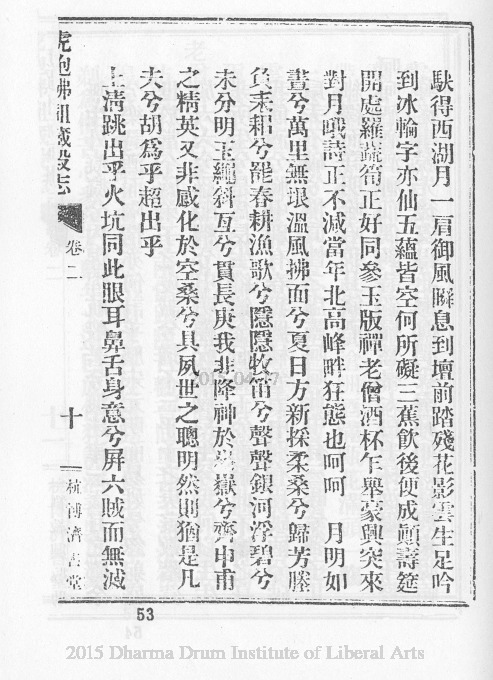 馱得西湖月一肩御風瞬息到壇前踏殘花影雲生足吟
到冰輪字亦仙五蘊皆空何所礙三蕉飲後便成顚壽筵
開處羅蔬筍正好同參玉版禪老僧酒杯乍舉豪興突來
對月哦詩正不減當年北高峰畔狂態也呵呵　月明如
晝兮萬里無垠溫風拂面兮夏日方新採柔桑兮歸芳塍
負耒耜兮罷春耕漁歌兮隱隱牧笛兮聲聲銀河浮碧兮
未分明玉繩斜亙兮貫長庚我非降神於嶽兮齊申甫
之精英又非感化於空桑兮具夙世之聰明然則猶是凡
夫兮胡爲乎超出乎
上清跳出乎火坑同此眼耳鼻舌身意兮屏六賊而無滅
虎跑佛祖藏殿志
卷二
十
杭州濟古堂
53
2015 Dharma Drum Institute of Liberal Arts